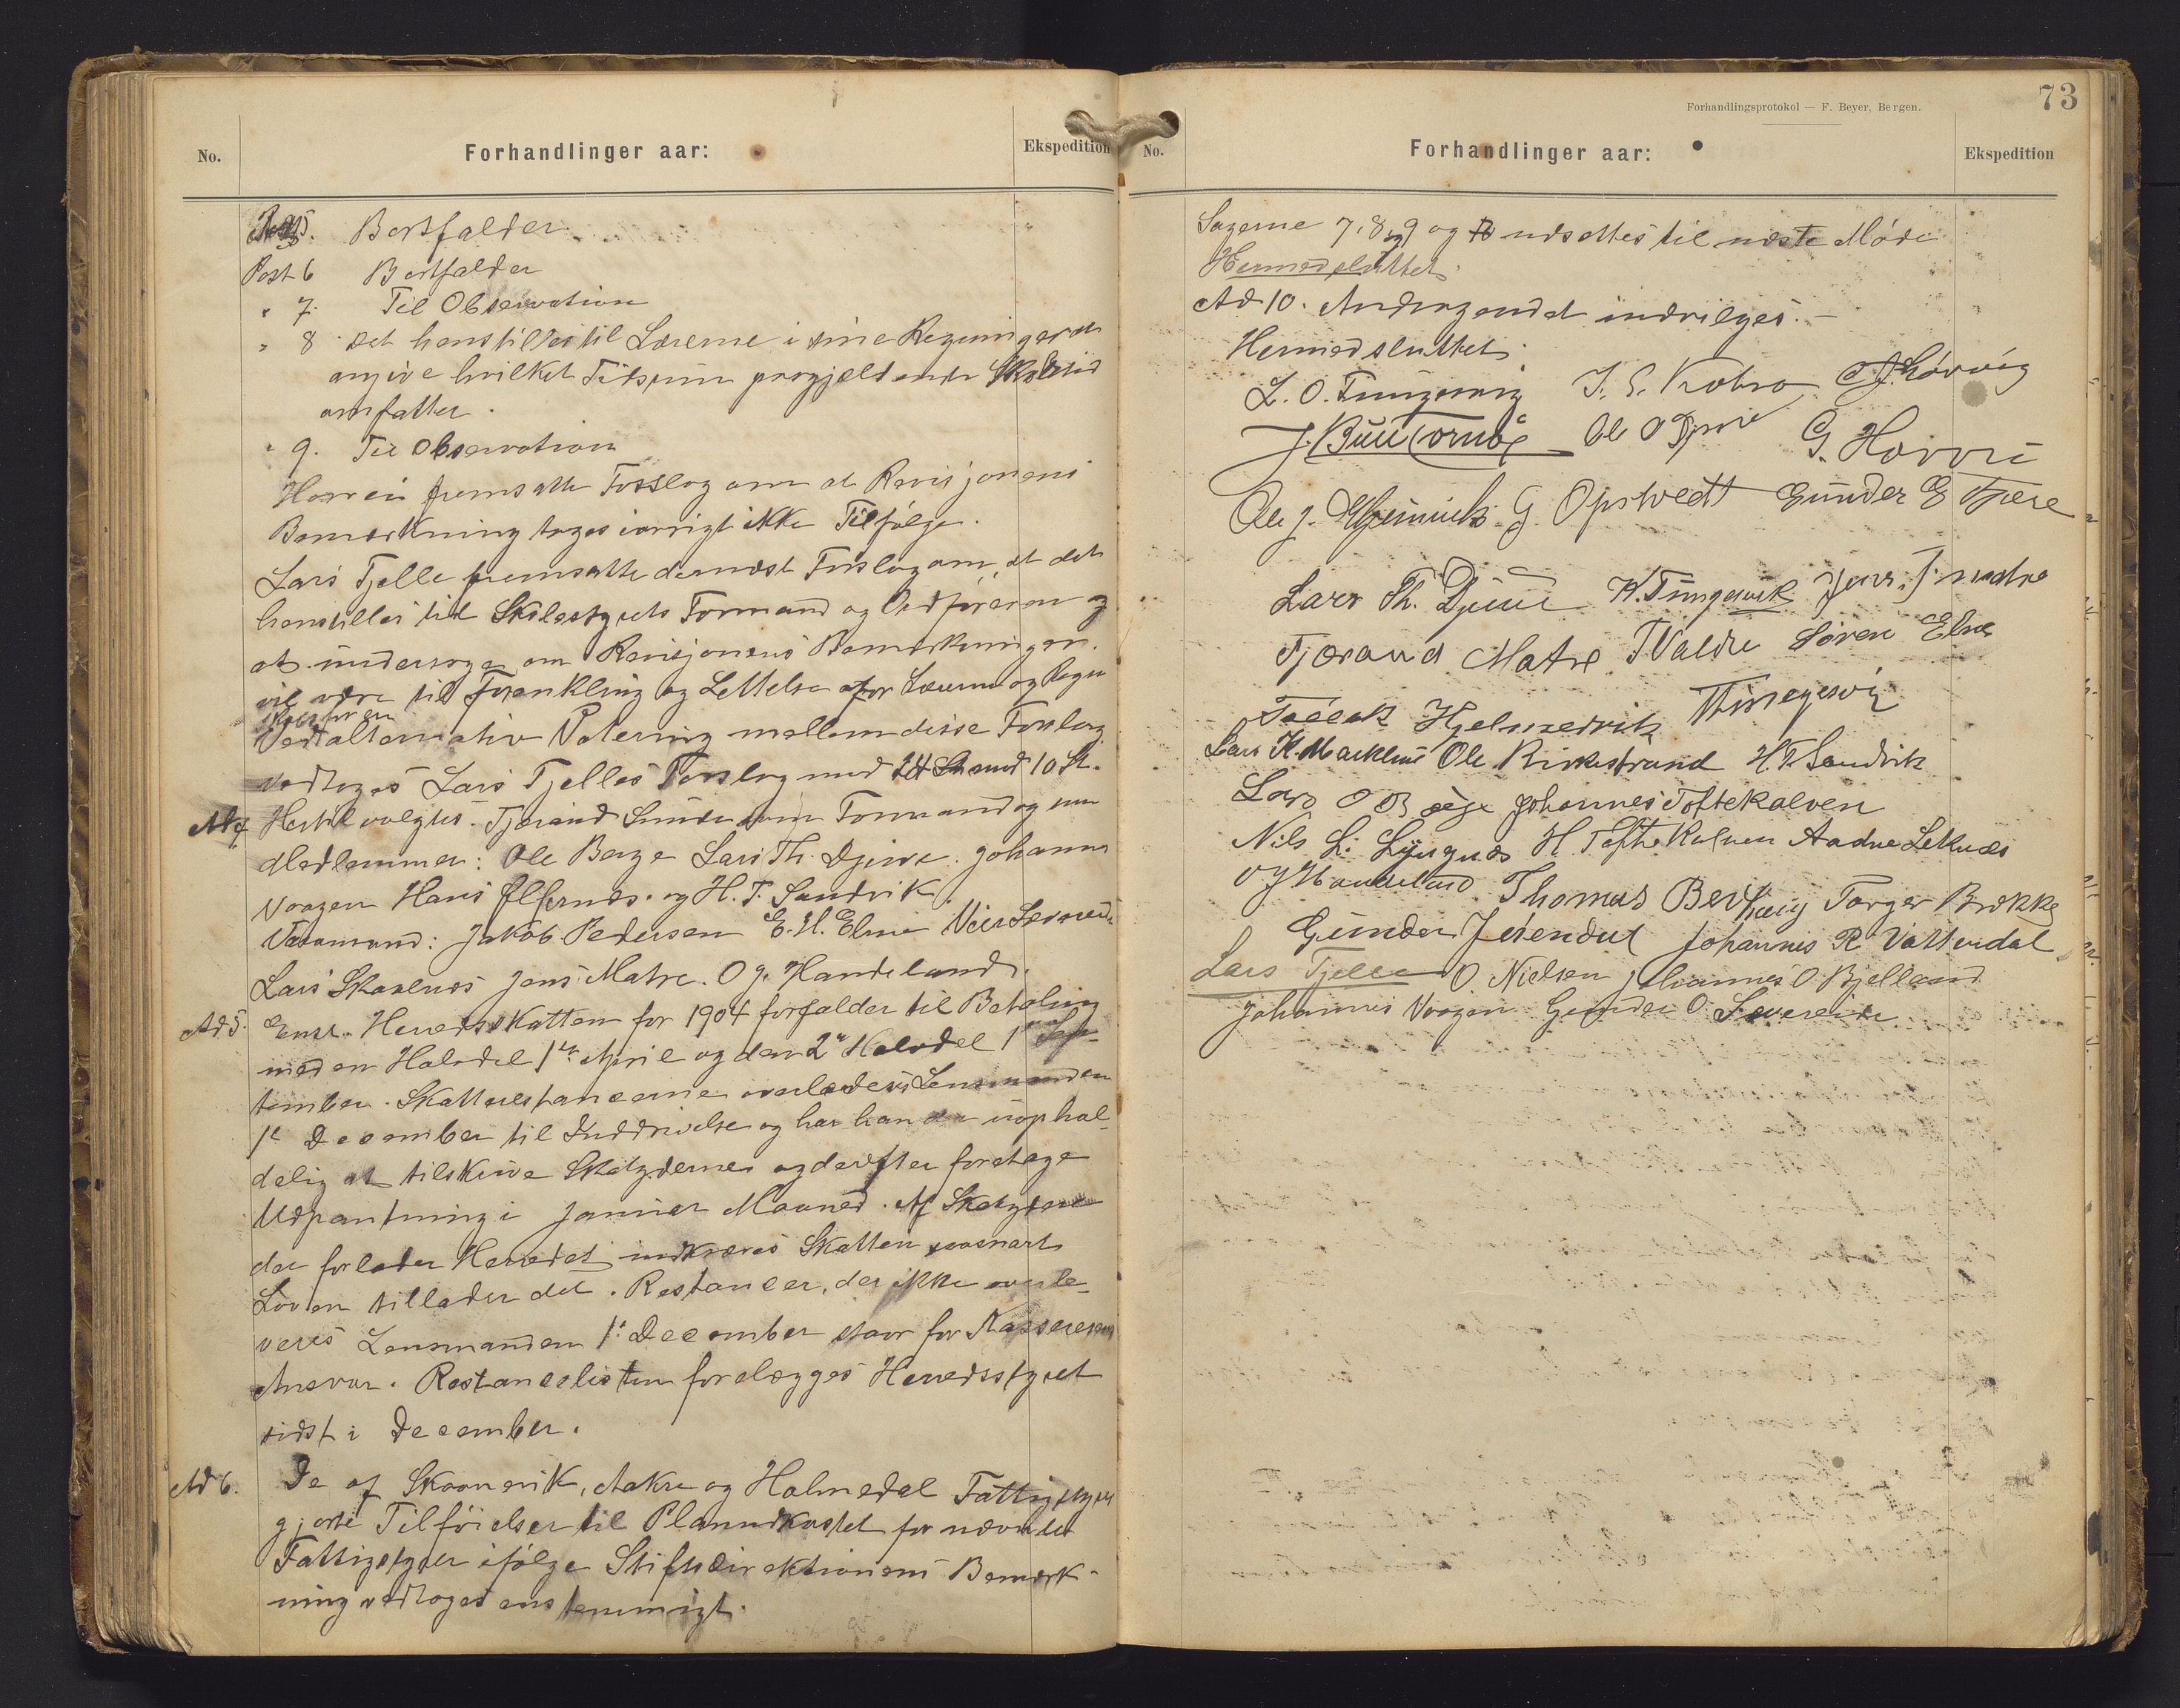 No.
Forhandlinger aar:
Ekspedition
Post 5. Bortfalder
Post 6 Bortfalder
" 7. Til Observation
" 8 Det henstilles til Lærerne i sine Regninger at
angive hvilket Tidsrum pasgjeldende Skoletid
omfatter.
" 9. Til Observation
Horvei fremsatte Forslag om at Revisjonens
Bemærkning toges iøvrigt ikke Tilfølge.
Lars Tjelle fremsatte dernæst Forslag om, at det
henstilles til Skolestyrets Formand og Ordføreren og
at undersøge om Revisjonens Bemærkninger.
vil være til Forenkling og Lettelse for Lærerne og Regn
skabsføren
Ved alternativ Votering mellem disse Forslag
vedtoges Lars Tjelles Forslag med 24 St mod 10 St.
Ad 4 Hertil valgtes. Tjerand Sunde som Formand og som
Medlemmer: Ole Berge Lars Th. Djuve. Johannes
Vaagen Hans Elfernæs. og H. T. Sandvik.
Varamænd: Jakob Pedersen E. H. Elne
Lars Skaalnæs Jens Matre. O J. Handeland.
Ad 5. Enst. Herredsskatten for 1904 forfalder til Betaling
med en Halvdel 1ste April og den 2n Halvdel 1ste Sep-
tember. Skatterestancerne overlades Lensmanden
1ste December til Inddrivelse og har han da uophol-
delig at tilskrive Skatyderne og derefter foretage
Udpantning i Januar Maaned. Af Skatydere
der forlader Herredet indkræves Skatten saasnart
Loven tillader det. Restancer, der ikke overle-
veres Lensmanden 1ste December staar for Kassererens
Ansvar. Restancelisten forelægges Herredsstyret
sidst i December.
Ad 6. De af Skaanevik, Aakre og Holmedal Fattigstyrer
gjorte Tilføielser til Planudkastet for nævnte
Fattigstyrer ifølge Stiftsdirektionens Bemærk-
ning vedtoges enstemmigt.
Forhandlingsprotokol — F. Beyer, Bergen.
73
No.
Forhandlinger aar:
Ekspedition
Sagerne 7, 8, 9 og udsettes til næste Møde
Hermed sluttet.
Ad 10. Andragendet indvilges. -
Hermed sluttet.
L. O. Tungesvig
G. Horvei
G. Opstvedt Gunder E Tjære
Lars Th. Djuve K. Tungesvik Jens
Tjerand Matre T Valdre Søren Elne
Lars K. Markhus Ole Kirkestrand H. T. Sandvik
Lars O Bøge Johannes Toftekalven
Nils L. Lyngnæs H Toftekalven Aadne Leknæs
O J Handeland Thomas Berhaug Torger Brekke
Gunder Johannes R Vattendal
Lars Tjelle O. Nielsen Johannes O Bjelland
Johannes Vaagen Gunder O. Severeide